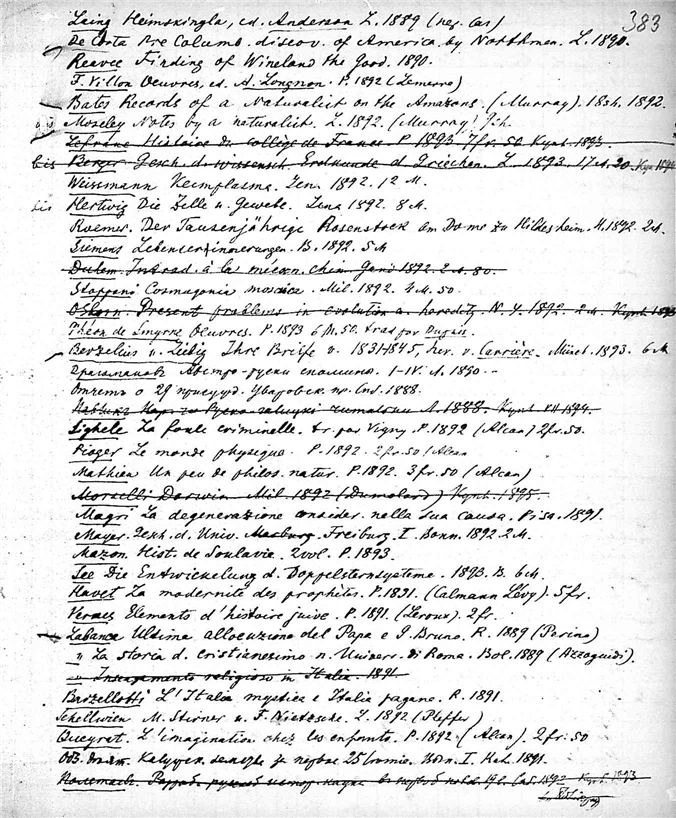 383
Laing Heimskingla, ed. Anderson L. 1889 (neg. Cas)
De Costa Pre Columb. discov. of America by Northmen. L. 1890.
Reeves Finding of Wineland the Good. 1890.
F. Villon Oeuvres, ed. A. Longnon. P. 1892 (Lemerre)
Bates Records of a Naturalist on the Amazons. (Murray). 18sh. 1892.
Moseley Notes by a naturalist. L. 1892. (Murray) 9sh.
Lefranc Histoire du collège de France P 1893. 7fr. 50
bis Berger Gesch. d. wissensch. Erdkunde d Griechen. L. 1893. 17 M. 20.
Weissmann Keimplasma. Jen. 1892. 12 M.
bis Hertwig Die Zelle u. Gewebe. Jena 1892. 8 M.
Roemer. Der Tausendjährige Rosenstock am Dome zu Hildesheim. H. 1892. 2 M.
Siemens Lebenserinnerungen. B. 1892. 5 M
Introd. à la mécan. chim. 1892. 2 M. 80.
Stoppani Cosmogonia mosaica. Mil. 1892. 4 M. 50.
Osborn. Present problems in evolution a. heredity. N. Y. 1892. 2 M.
Théon de Smyrne Oeuvres. P. 1893 6 M. 50. trad par Dupuis.
Berzelius u. Liebig Ihre Briefe v. 1831-1845, her. v. Carrière. Münch. 1893. 6 M
Драгоманов Австро-руски спомини. I-IV. Л. 1890.
Отчетъ о 29 присужд. Уваровск. пр. Спб. 1888.
1888. 1894.
Sighele La foule criminelle. tr. par Vigny. P. 1892 (Alcan) 2fr. 50.
Pioger Le monde physique. P. 1892. 2fr. 50 (Alcan
Mathieu Un peu de philos. natur. P. 1892. 3fr. 50 (Alcan)
Morselli Darwin Mil 1892 (Dumolard) 1895.
Magri La degenerazione consider. nella sua causa. Pisa. 1891.
Mayer. Gesch. d. Univ. Marburg. Freiburg. I. Bonn. 1892. 2 M.
Mazon. Hist. de Soulavie. 2vol. P. 1893.
See Die Entwickelung d. Doppelsternsysteme. 1893. B. 6 M.
Havet La modernité des prophètes. P. 1891. (Calmann Lévy). 5fr.
Vernes Elements d'histoire juive. P. 1891. (Leroux). 2fr.
Labanca Ultima allocuzione del Papa e G. Bruno. R. 1889 (Perino)
" La storia d. cristianesimo n. Univers. di Roma. Bol. 1889 (Azzoguidi).
" Insegnamento religioso in Italia. 1891.
Barzellotti L'Italia mystica e Italia pagana. R. 1891.
Schellwien M. Stirner u. F. Nietzsche. L. 1892 (Pfeffer)
Queyrat. L'imagination chez les enfants. P. 1892. (Alcan). 2fr. 50
1891.
1893.